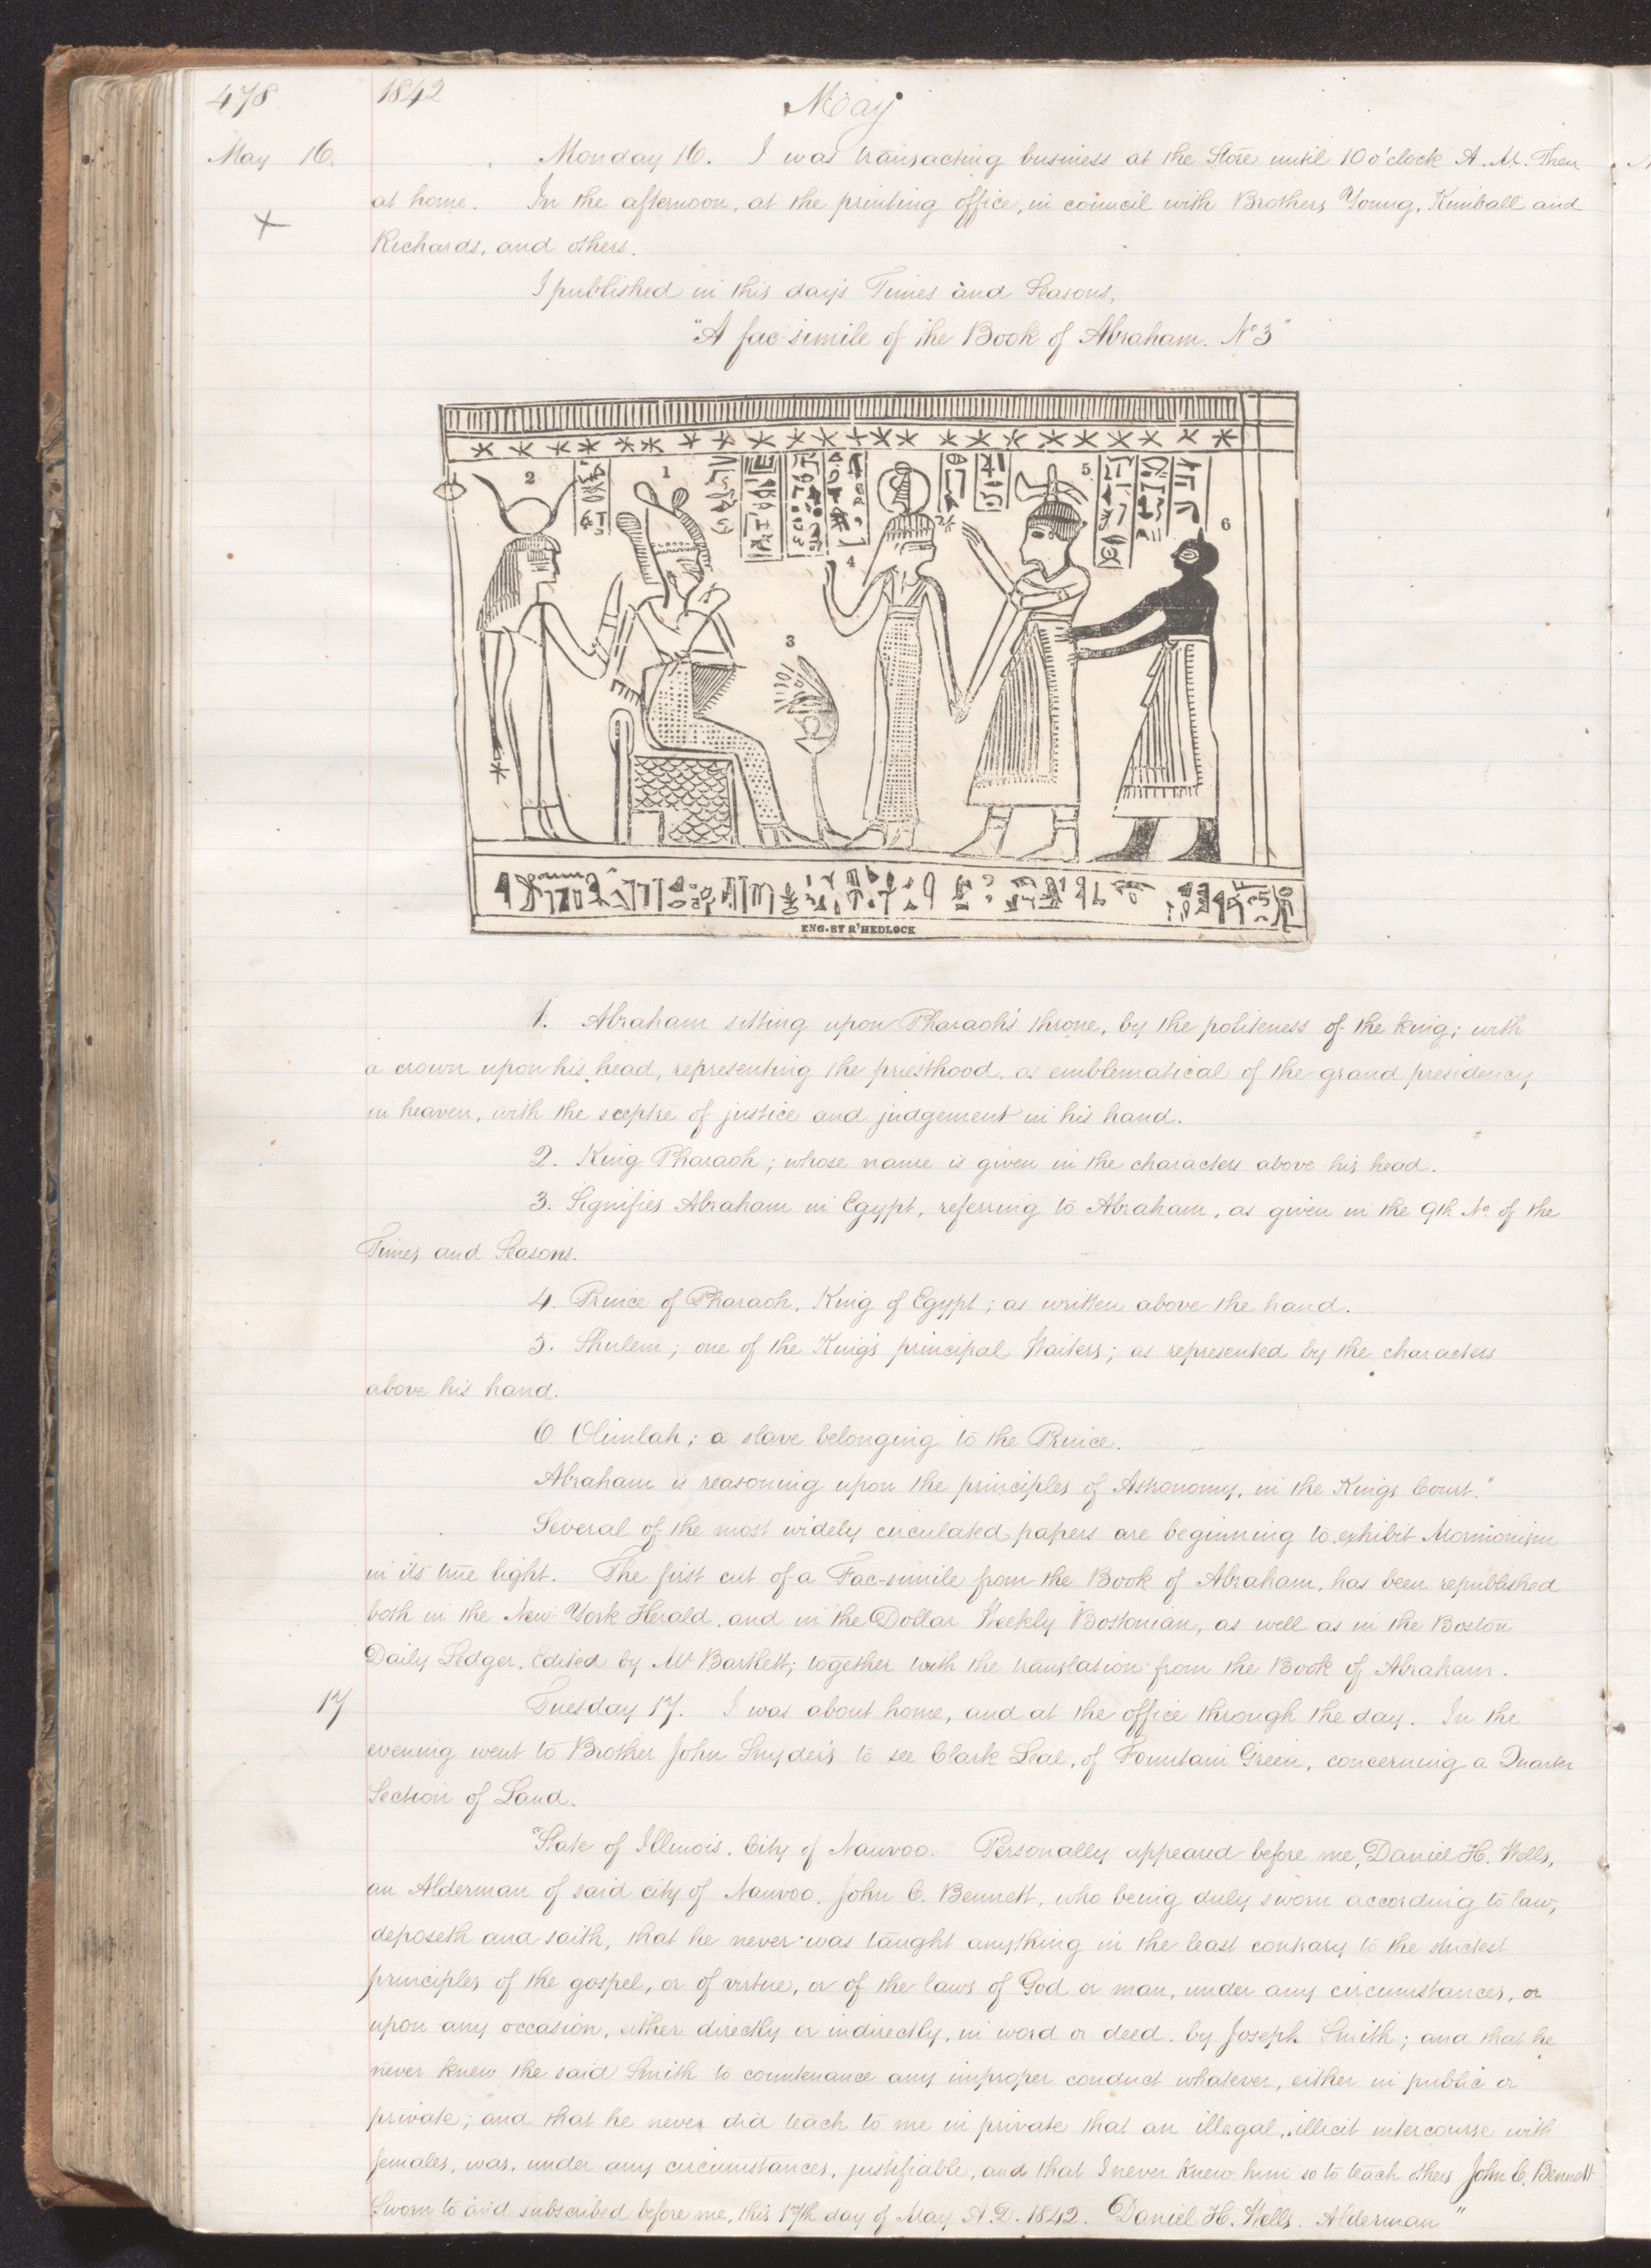 478
1842
May
May 16.
Monday 16. I was transacting business at the Store until 10 o'clock A. M. Then
at home. In the afternoon, at the printing office, in council with Brothers Young, Kimball and
Richards, and others.
I published in this day's Times and Seasons,
"A fac-simile of the Book of Abraham. No 3"
2
1
5
6
4
3
ENG. BY R' HEDLOCK
1. Abraham setting upon Pharaoh's throne, by the politeness of the King; with
a crown upon his head, representing the priesthood, as emblematical of the grand presidency
in heaven, with the sceptre of justice and judgement in his hand.
2. King Pharaoh; whose name is given in the characters above his head.
3. Signifies Abraham in Egypt, referring to Abraham, as given in the 9th No. of the
Times and Seasons.
4. Prince of Pharaoh, King of Egypt; as written above the hand.
5. Shulem; one of the King's principal Waiters; as represented by the characters
above his hand.
6. Olimlah; a slave belonging to the Prince.
Abraham is reasoning upon the principles of Astronomy, in the Kings Court."
Several of the most widely circulated papers are beginning to exhibit Mormonism
in its true light. The first cut of a Fac-simile from the Book of Abraham, has been republished
both in the New York Herald, and in the Dollar Weekly Bostonian, as well as in the Boston
Daily Ledger, Edited by Mr Bartlett; together with the translation from the Book of Abraham.
17
Tuesday 17. I was about home, and at the office through the day. In the
evening went to Brother John Snyder's to see Clark Leal, of Fountain Green, concerning a Quarter
Section of Land.
"State of Illinois, City of Nauvoo. Personally appeared before me, Daniel H. Wells,
an Alderman of said city of Nauvoo, John C. Bennett, who being duly sworn according to law,
deposeth and saith, that he never was taught anything in the least contrary to the strictest
principles of the gospel, or of virtue, or of the laws of God or man, under any circumstances, or
upon any occasion, either directly or indirectly, in word or deed, by Joseph Smith; and that he
never knew the said Smith to countenance any improper conduct whatever, either in public or
private; and that he never did teach to me in private that an illegal, illicit intercourse with
females, was, under any circumstances, justifiable, and that I never knew him so to teach others John C. Bennett
Sworn to and subscribed before me, this 17th day of May A. D. 1842. Daniel H. Wells. Alderman"